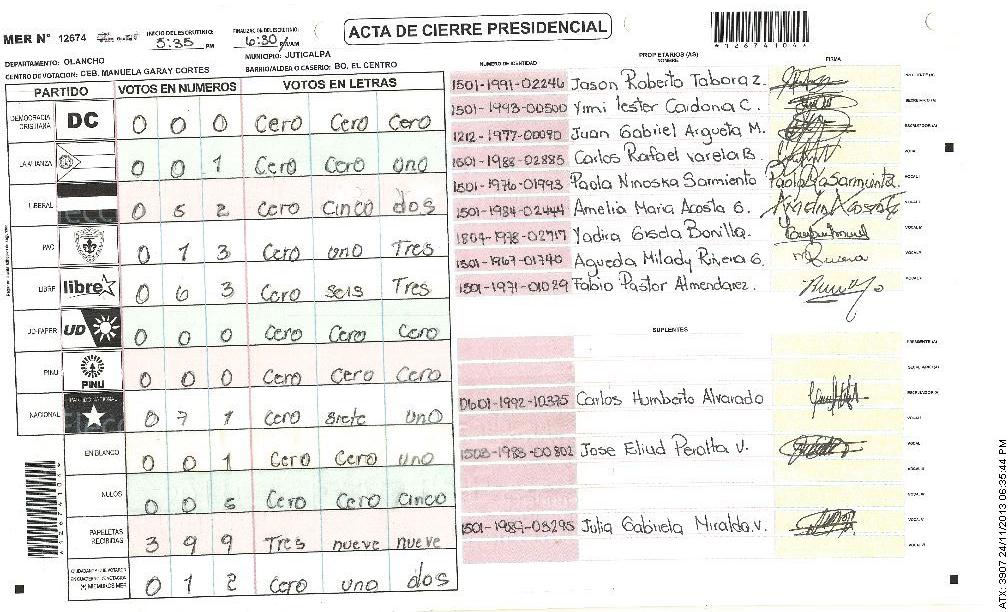 ACTA DE CIERRE PRESIDENCIAL
MER N° 12674
INICIO DEL ESCRUTINIO: 5:35 PM
FINALIZACION DEL ESCRUTINIO: 6:30 P/AM
*12674104*
DEPARTAMENTO: OLANCHO
MUNICIPIO: JUTICALPA
CENTRO DE VOTACION: CEB. MANUELA GARAY CORTES
BARRIO/ALDEA O CASERIO: BO. EL CENTRO
PARTIDO VOTOS EN NUMEROS VOTOS EN LETRAS
DEMOCRACIA CRISTIANA DC 0 0 0 Cero Cero Cero
LA ALIANZA 0 0 1 Cero Cero uno
LIBERAL 0 5 2 Cero Cinco dos
PAC 0 1 3 Cero uno Tres
LIBRE libre 0 6 3 Cero seis Tres
UD-FAPER UD 0 0 0 Cero Cero Cero
PINU PINU 0 0 0 Cero Cero Cero
NACIONAL 0 7 1 Cero siete uno
EN BLANCO 0 0 1 Cero Cero uno
NULOS 0 0 5 Cero Cero Cinco
PAPELETAS RECIBIDAS 3 9 9 Tres nueve nueve
0 1 2 Cero uno dos
NUMERO DE IDENTIDAD PROPIETARIOS (AS) NOMBRE FIRMA
1501-1991-02246 Jason Roberto Tabora z.
1501-1993-00500 Yimi lester Cardona C.
1212-1977-00090 Juan Gabriel Argueta M.
1501-1988-02885 Carlos Rafael varela B.
1501-1976-01993 Paola Ninoska Sarmiento
1501-1984-02444 Amelia Maria Acosta G.
1804-1978-02717 Yadira Gisela Bonilla.
1501-1967-01740 Agueda Milady Rivera G.
1501-1971-01029 Fabio Pastor Almendarez.
SUPLENTES
0601-1992-10375 Carlos Humberto Alvarado
1503-1983-00802 Jose Eliud Peralta V.
1501-1989-03295 Julia Gabriela Miralda v.
ATX: 3907 24/11/2013 06:35:44 PM